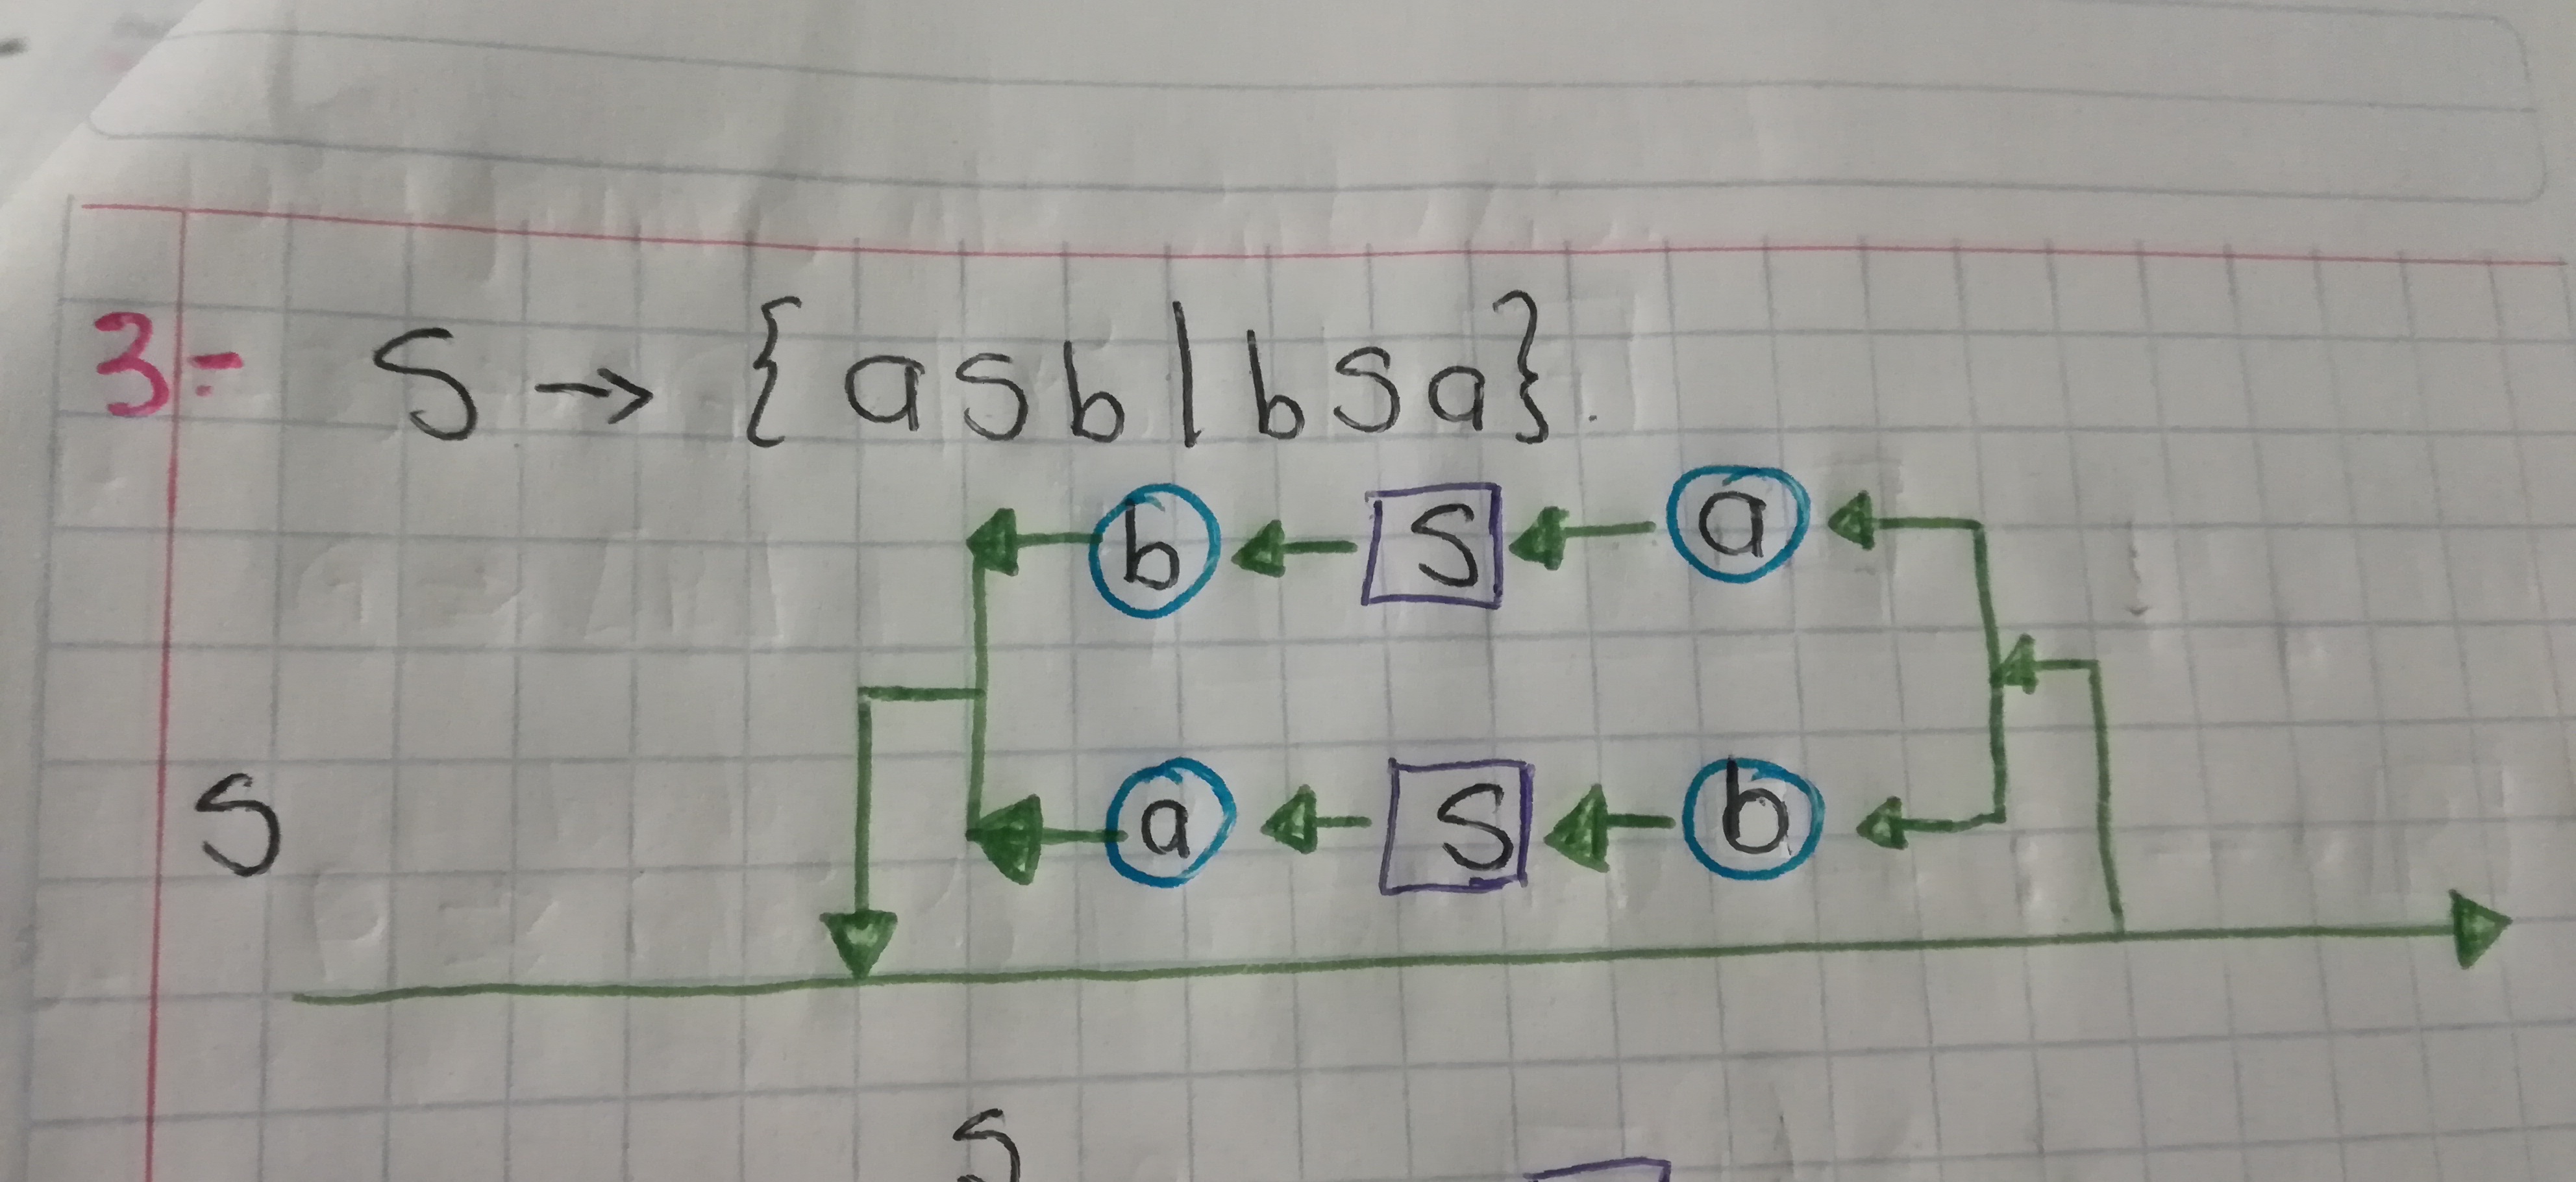 3- S → { a s b | b s a }.
b S a
S
a S b
S